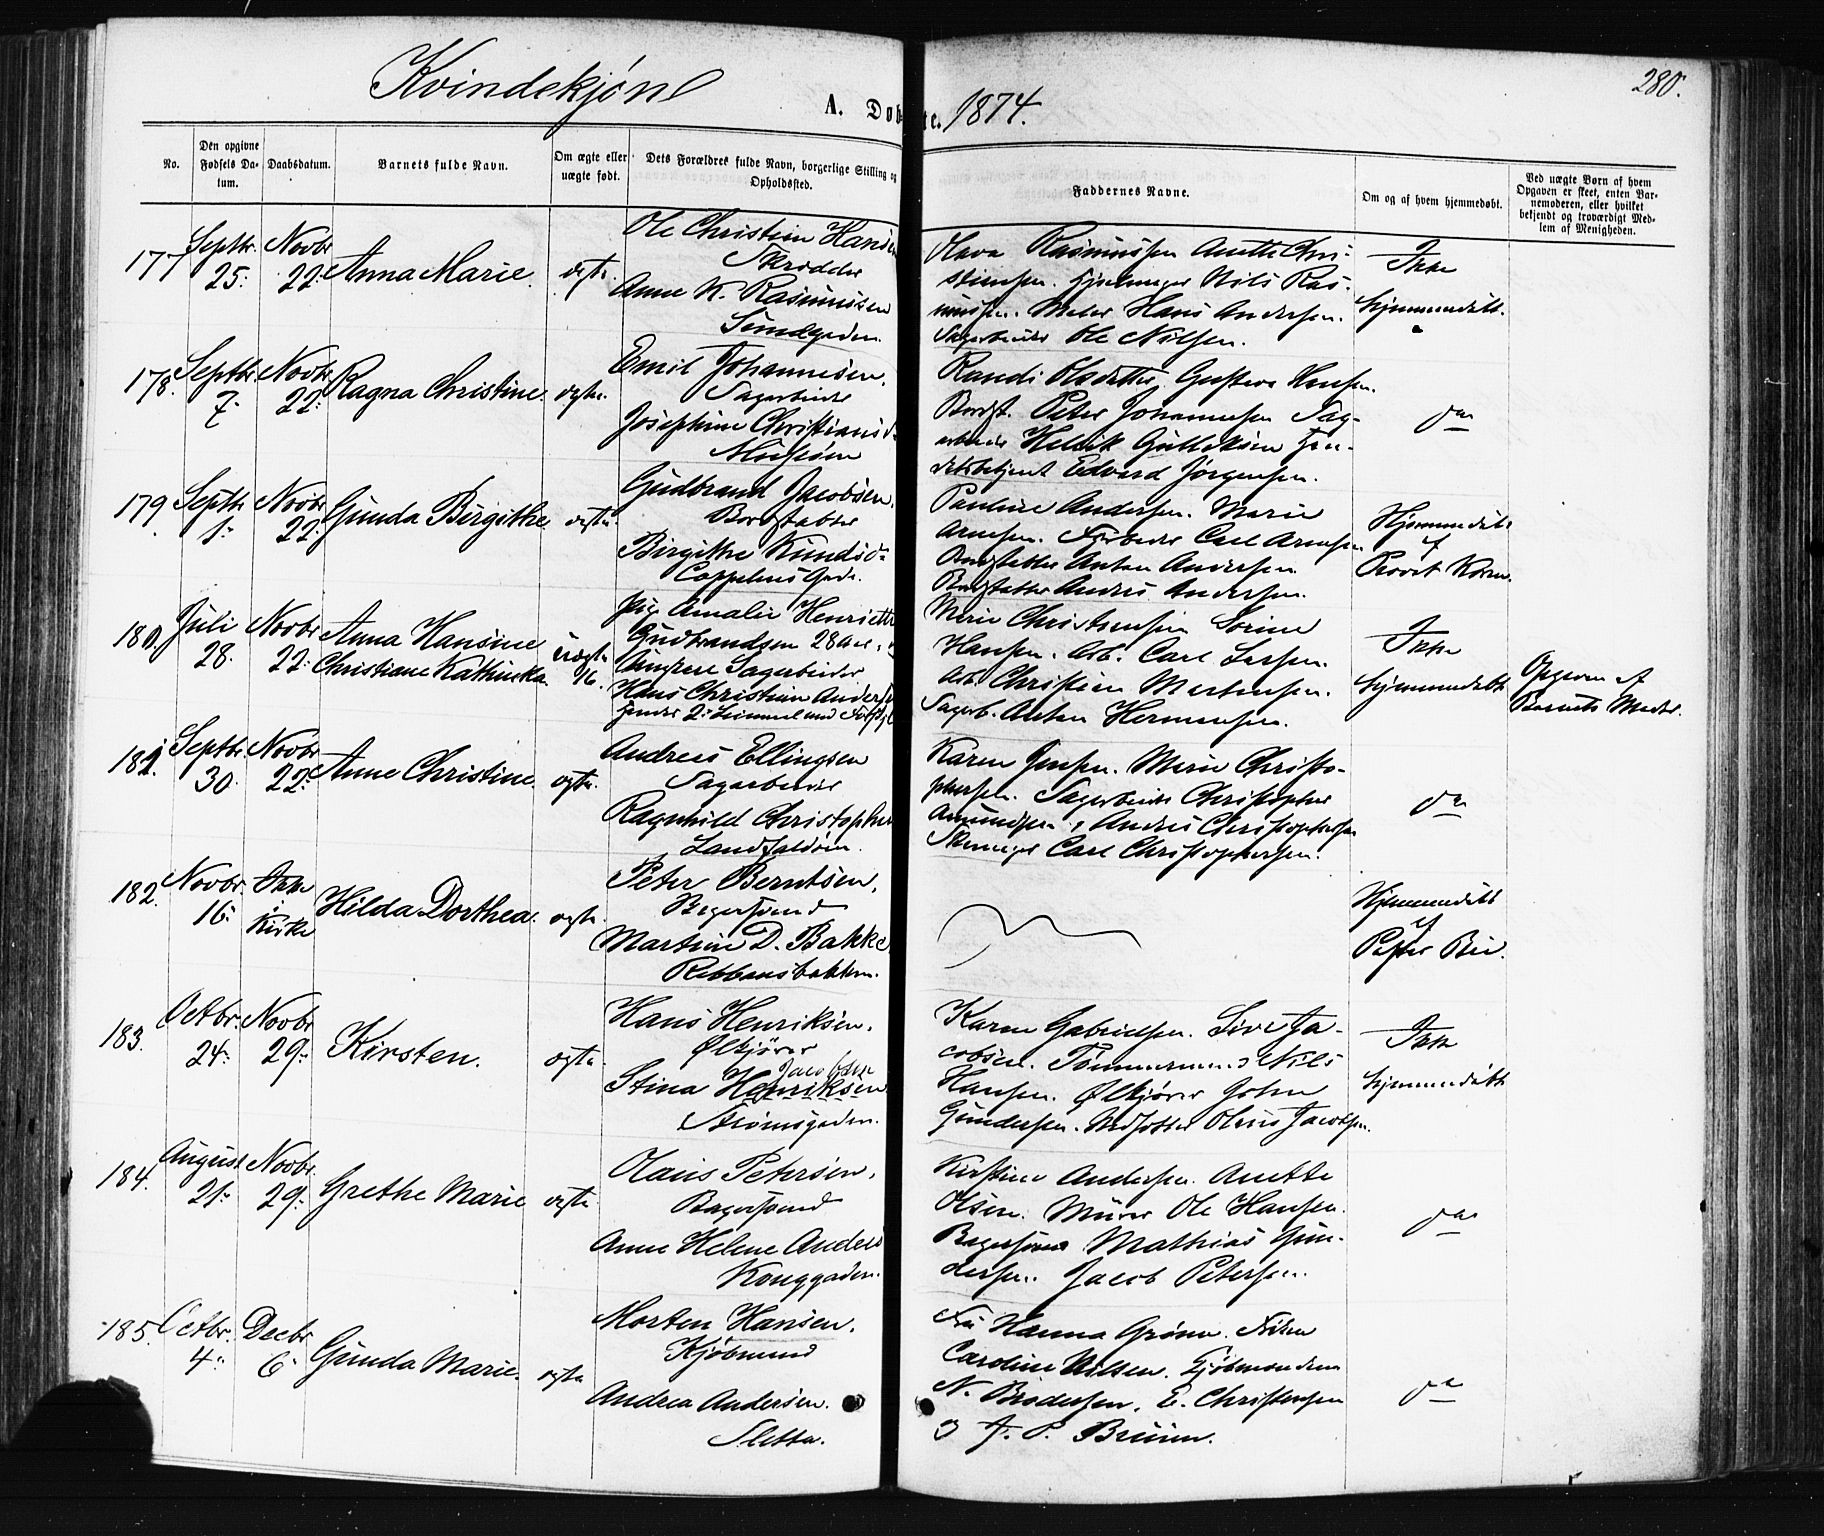 Kvindekjøn
A. Døbte. 1874.
280.
No.
Den opgivne Fødsels Datum.
Daabsdatum.
Barnets fulde Navn.
Om ægte eller uægte født.
Dets Forældres fulde Navn, borgerlige Stilling og Opholdssted.
Faddernes Navne.
Om og af hvem hjemmedøbt.
Ved uægte Børn af hvem Opgaven er skeet, enten Barnemoderen, eller hvilket bekjendt og troværdigt Medlem af Menigheden.
177
Septbr. 25.
Novbr 22.
Anna Marie.
ægte.
Ole Christian Hansen
Skrædder
Anne K. Rasmussen
Rasmussen Anette Chri-
stensen. Nils Ras-
mussen. Maler Hans Andersen.
Sagarbeider Ole Nilsen.
Ikke
hjemmedøbt.
178.
Septbr 7.
Novbr 22.
Ragna Christine.
ægte.
Emil Johannesen.
Sagarbeider
Josephine Christiansd.
Randi Olsdatter, Gustava Hansen.
Bordst. Peter Johannesen Sag-
arbeider Gulleksen Han-
delsbetjent Edvard Jørgensen.
do
179
Septbr 1.
Novbr 22.
Gunda Birgithe
ægte.
Gudbrand Jacobsen.
Bordstabler
Birgithe Knudsd.
Cappelens Gade.
Pauline Andersen. Marie
Arnesen. Carl Arnesen
Bordstabler Anton Andersen
Bordstabler Andreas Andersen.
Hjemmedøbt
af
Provst Koren.
180.
Juli 28.
Novbr 22.
Anna Hansine
Christiane Kathinka
uægte
16.
Pige Amalie Henriette
Gudbrandsen 28 Aar,
Ungkarl Sagarbeider
Hans Christian Andersen
Marie Christensen Sorine
Hansen. Arb. Carl Larsen.
Arb. Christian Martinsen.
Sagarb. Anton Hermansen.
Ikke
hjemmedøbt
Opgaven af
Barnets Moder.
181.
Septbr 30.
Novbr 22.
Anne Christine.
ægte.
Andreas Ellingsen
Sagarbeider
Ragnhild Christopher
Landfaldøen.
Karen Jensen. Marie Christo-
phersen. Sagarbeider Christopher
Amundsen, Andreas Christophersen
Carl Christophersen.
do
182.
Novbr. 16.
Ikke
i
Kirke
Hilda Dorthea.
ægte
Peter Berntsen.
Bagersvend
Martine D. Bakke
Rebbansbakken.
Hjemmedøbt
af
183.
Octbr. 24.
Novbr 29.
Kirsten.
ægte
Hans Henriksen.
Ølkjører
Jacobsen
Stina Henriksen
Strømsgaden.
Karen Gabrielsen. Live Ja-
cobsen. Tømmermand Nils
Hansen. Ølkjører John
Gundersen. Olaus Jacobsen.
Ikke
hjemmedøbt
184.
August 21.
Novbr. 29.
Grethe Marie
ægte
Olaus Petersen.
Bagersvend
Anne Helene Anders
Konggaden.
Kirstine Andersen. Anette
Olsen. Murer Ole Hansen.
Bagersvend Mathias Gun-
dersen. Jacob Petersen.
do
185.
Octbr. 4.
Decbr 6.
Gunda Marie.
ægte
Morten Hansen.
Kjøbmand
Andrea Andersen.
Sletta.
Fru Hanna Grønn. Frøken
Caroline Nilsen. Kjøbmændene
N. Brodersen, E. Christensen
J. P. Bruun.
do